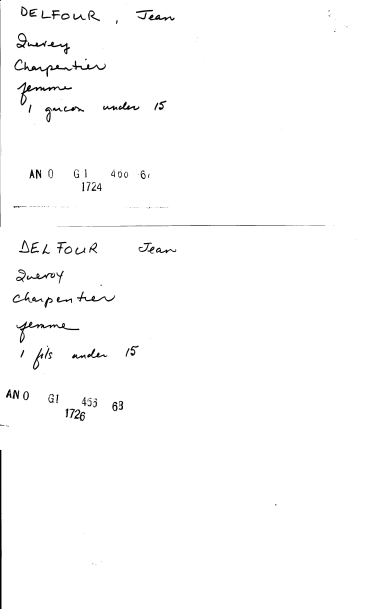 DELFOUR, Jean
Quercy
Charpentier
femme
1 garcon under 15
AN O G1 400 6
1724
DELFOUR Jean
Quercy
Charpentier
femme
1 fils under 15
AN O G1 463 63
1726